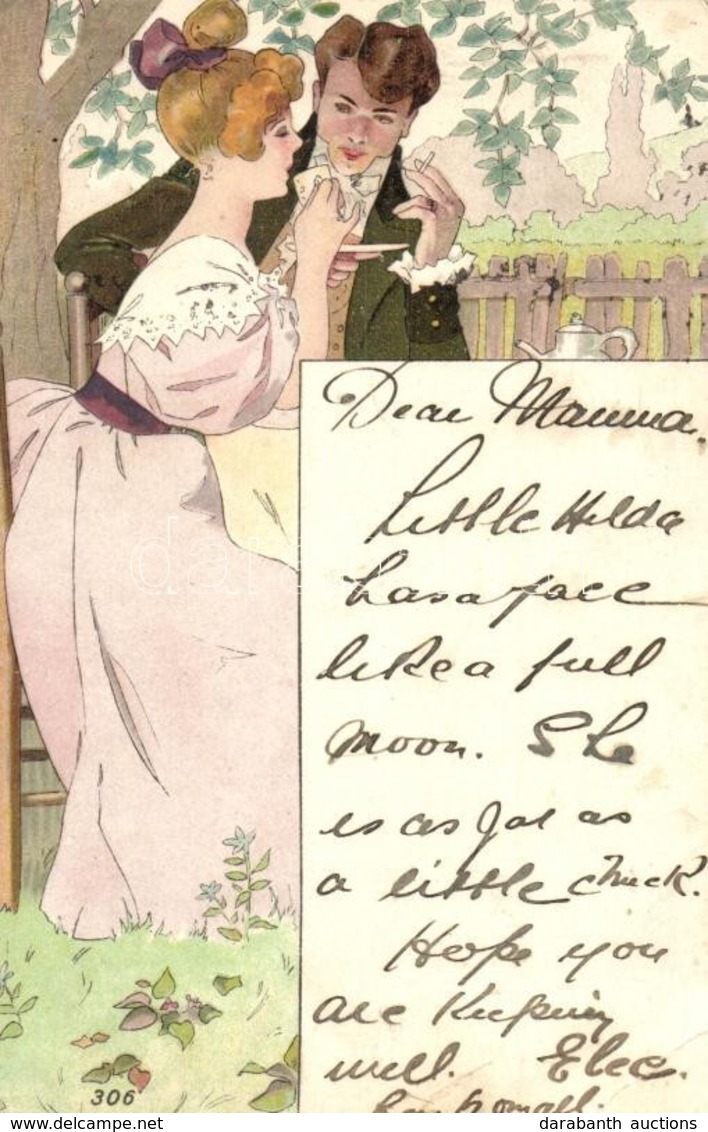 Dear Mamma.
Little Hilda
has a face
like a full
moon. She
is as fat as
a little chick.
Hope you
are keeping
well.
306
darabanth auctions